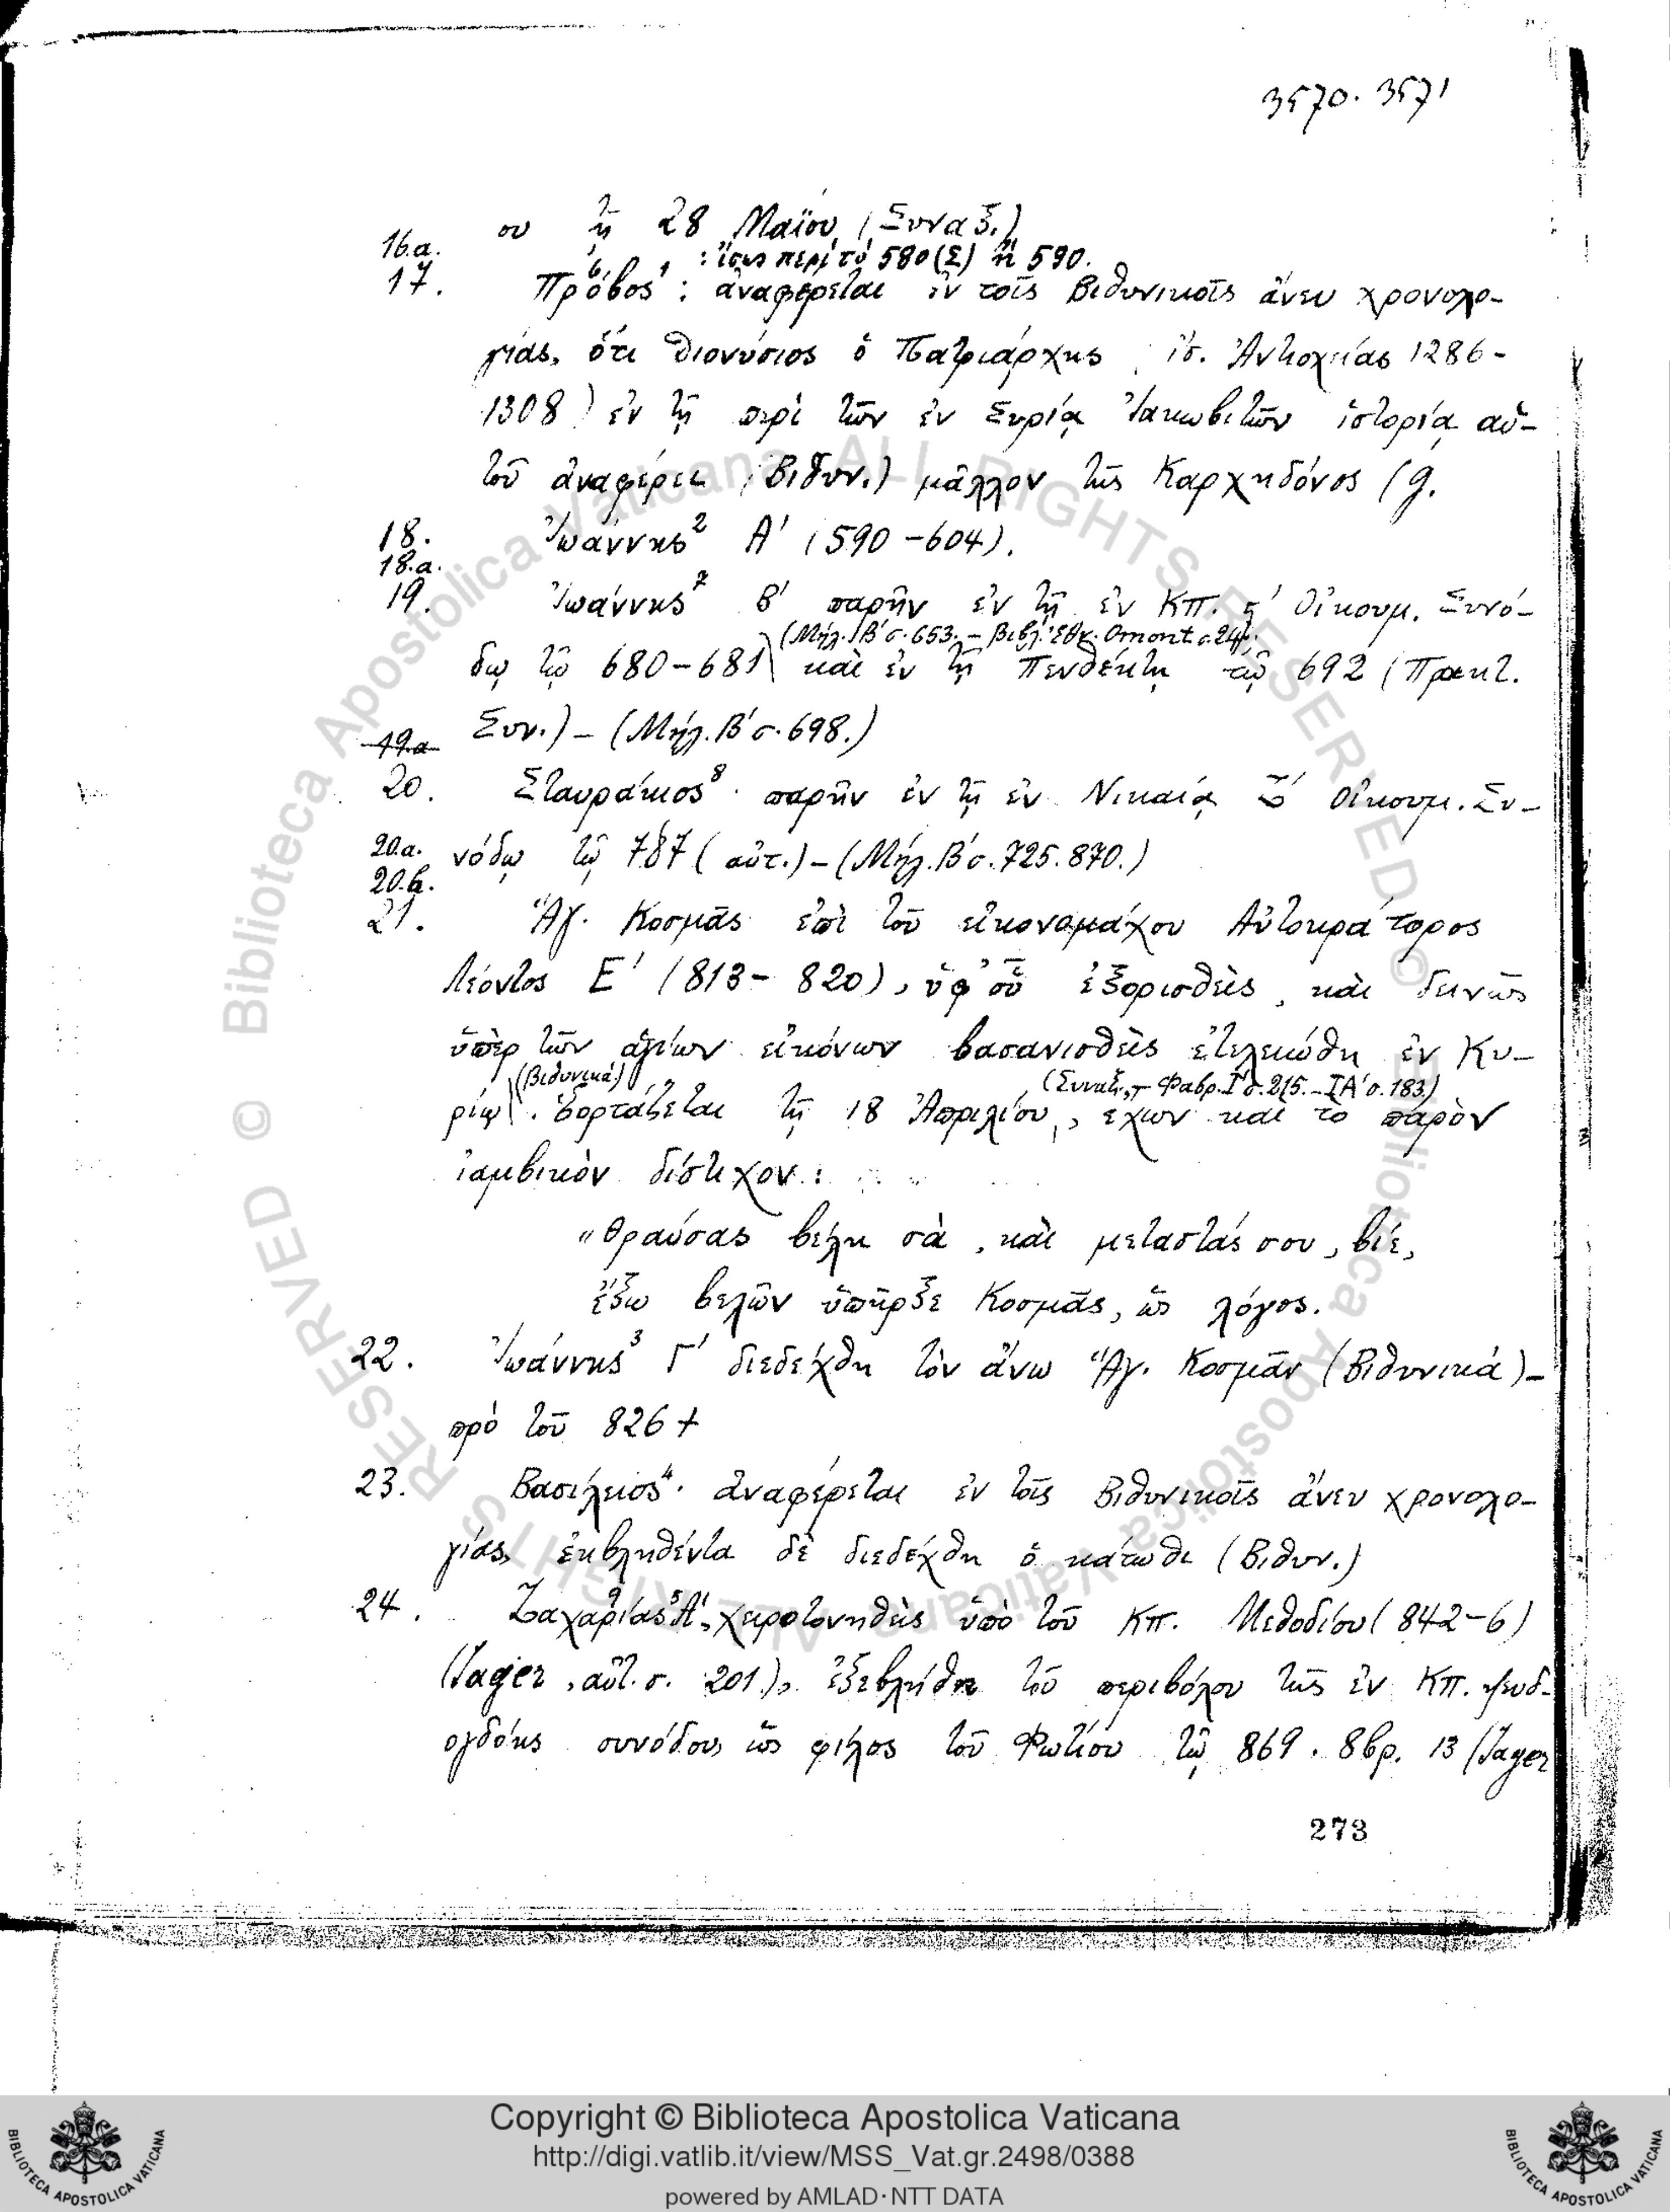 3570. 3571
ου τῇ 28 Μαΐου (Συναξ.)
16.α. : ἴσως περὶ τὸ 580 (Σ) ἢ 590.
17. Πρόβος¹ : ἀναφέρεται ἐν τοῖς Βιθυνικοῖς ἄνευ χρονολο-
γίας, ὅτι Διονύσιος ὁ Πατριάρχης ἰσ. Ἀντιοχείας 1286-
1308) ἐν τῇ περὶ τῶν ἐν Συρίᾳ Ἰακωβιτῶν ἱστορίᾳ αὐ-
τοῦ ἀναφέρει (Βιθυν.) μᾶλλον τῆς Καρχηδόνος
18. Ἰωάννης² Α' (590-604).
18.α.
19. Ἰωάννης⁷ Β' παρῆν ἐν τῇ ἐν ΚΠ. ϛ' Οἰκουμ. Συνό-
(Μήλ. Β' σ. 653. – Βιβλ. Ἐθν. Omont σ. 24).
δῳ τῷ 680-681 καὶ ἐν τῇ Πενθέκτῃ τῷ 692 (Πρακτ.
Συν.) – (Μήλ. Β' σ. 698.)
19.α
20. Σταυράκιος⁸ · παρῆν ἐν τῇ ἐν Νικαίᾳ Ζ' Οἰκουμ. Συ-
20.α. νόδῳ τῷ 787 (αὐτ.) – (Μήλ. Β' σ. 725. 870.)
20.β.
21. Ἅγ. Κοσμᾶς ἐπὶ τοῦ εἰκονομάχου Αὐτοκράτορος
Λέοντος Ε' (813-820), ὑφ' οὗ ἐξορισθεὶς, καὶ δεινῶς
ὑπὲρ τῶν ἁγίων εἰκόνων βασανισθεὶς ἐτελειώθη ἐν Κυ-
(Βιθυνικά) (Συναξ. – Φαβρ. Ι' σ. 215. – ΙΑ' σ. 183)
ρίῳ . Ἑορτάζεται τῇ 18 Ἀπριλίου, ἔχων καὶ τὸ παρὸν
ἰαμβικὸν δίστιχον :
"Θραύσας βέλη σὰ, καὶ μεταστάς σου, βίε,
ἔξω βελῶν ὑπῆρξε Κοσμᾶς, ὡς λόγος.
22. Ἰωάννης³ Γ' διεδέχθη τὸν ἄνω Ἅγ. Κοσμᾶν (Βιθυνικά) –
πρὸ τοῦ 826 +
23. Βασίλειος⁴ · ἀναφέρεται ἐν τοῖς Βιθυνικοῖς ἄνευ χρονολο-
γίας, ἐκβληθέντα δὲ διεδέχθη ὁ κάτωθι (Βιθυν.)
24. Ζαχαρίας⁵ Α', χειροτονηθεὶς ὑπὸ τοῦ ΚΠ. Μεθοδίου (842-6)
(Jager, αὐτ. σ. 201.), ἐξεβλήθη τοῦ περιβόλου τῆς ἐν ΚΠ. ψευδ-
ογδόης συνόδου ὡς φίλος τοῦ Φωτίου τῷ 869. 8βρ. 13 (Jager
273
Copyright © Biblioteca Apostolica Vaticana
http://digi.vatlib.it/view/MSS_Vat.gr.2498/0388
powered by AMLAD·NTT DATA